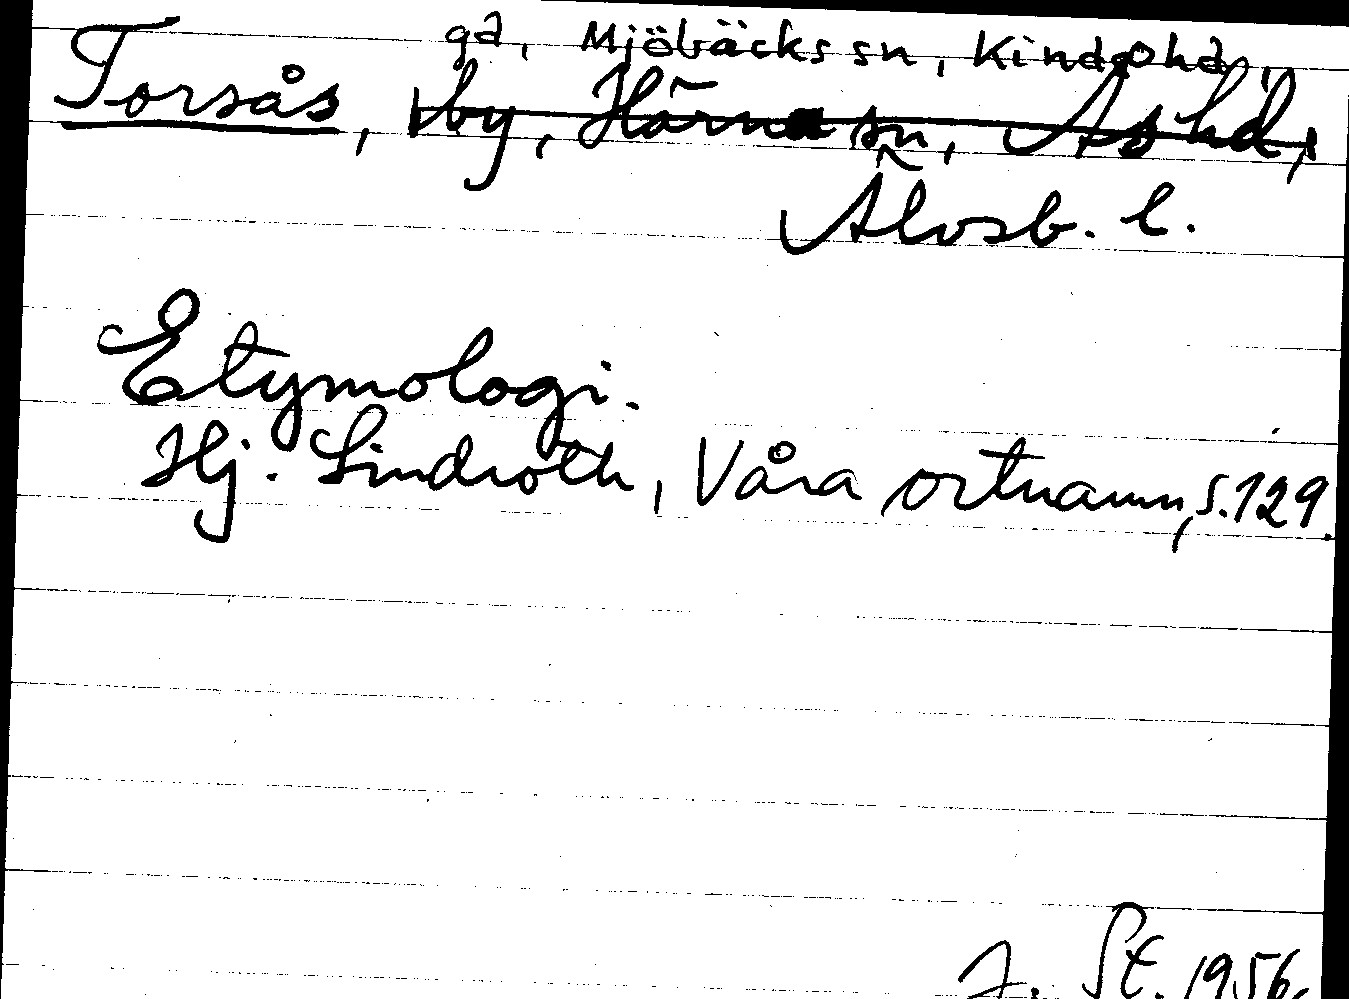 gd, Mjöbäcks sn, Kinds hd,
Torsås, by, Härna sn, Ås hd,
Älvsb. l.
Etymologi.
Hj. Lindroth, Våra ortnamn, s. 129.
J. St. 1956.